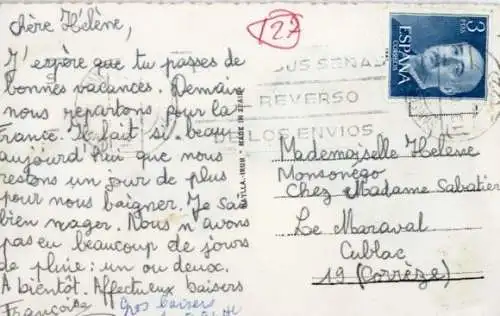 chère Hélène,
J'espère que tu passes de
bonnes vacances. Demain
nous repartons pour la
France. Il fait si beau
aujourd'hui que nous
restons un jour de plus
pour nous baigner. Je sais
bien nager. Nous n'avons
pas eu beaucoup de jours
de pluie : un ou deux.
A bientôt. Affectueux baisers
Françoise
Gros baisers
27
3
PTA
ESPAÑA
CORREOS
SUS SEÑAS
REVERSO
DE LOS ENVIOS
MADE IN SPAIN
Mademoiselle Hélène
Monsonégo
Chez Madame Sabatier
Le Maraval
Cublac
19 (Corrèze)